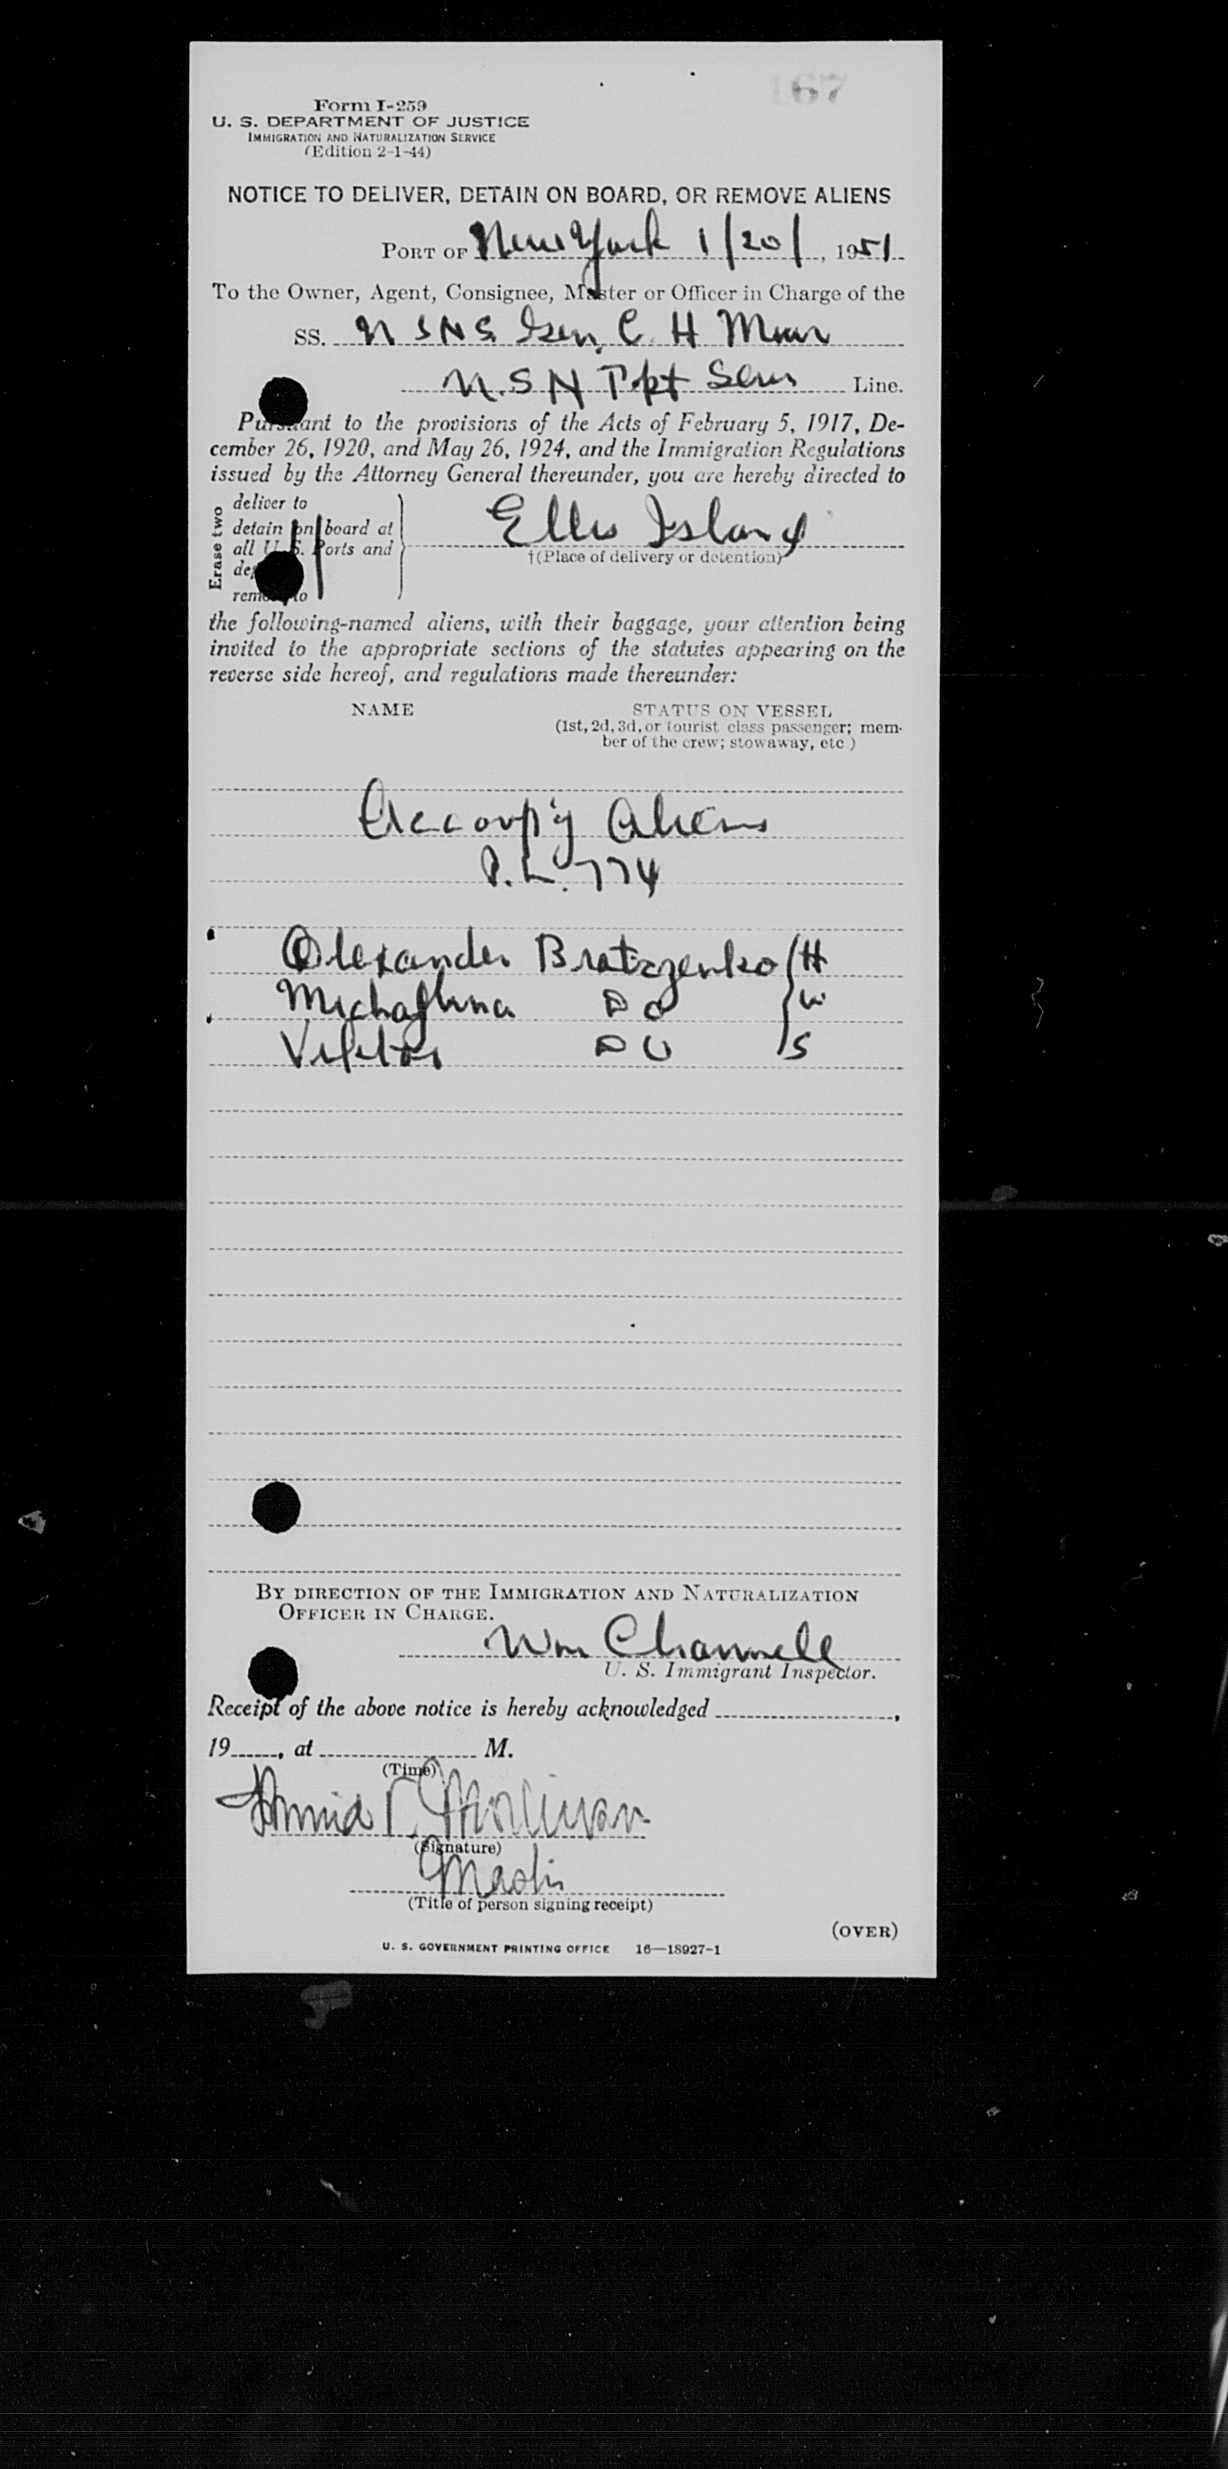 167
Form I-259
U. S. DEPARTMENT OF JUSTICE
IMMIGRATION AND NATURALIZATION SERVICE
(Edition 2-1-44)
NOTICE TO DELIVER, DETAIN ON BOARD, OR REMOVE ALIENS
PORT OF New York 1/20/, 1951
To the Owner, Agent, Consignee, Master or Officer in Charge of the
SS. U S N S Gen. C. H Muir
U. S N Tpt Serv Line.
Pursuant to the provisions of the Acts of February 5, 1917, De-
cember 26, 1920, and May 26, 1924, and the Immigration Regulations
issued by the Attorney General thereunder, you are hereby directed to
Erase two
deliver to
detain on board at
all U. S. Ports and
remove to
Ellis Island
†(Place of delivery or detention)
the following-named aliens, with their baggage, your attention being
invited to the appropriate sections of the statutes appearing on the
reverse side hereof, and regulations made thereunder:
NAME STATUS ON VESSEL
(1st, 2d, 3d, or tourist class passenger; mem-
ber of the crew; stowaway, etc.)
Accomp'g Aliens
P. L. 774
Olexander Bratezenko H
Michajlina Do W
Viktor DO S
BY DIRECTION OF THE IMMIGRATION AND NATURALIZATION
OFFICER IN CHARGE.
Wm Channell
U. S. Immigrant Inspector.
Receipt of the above notice is hereby acknowledged ,
19 , at M.
(Time)
(Signature)
(Title of person signing receipt)
(OVER)
U. S. GOVERNMENT PRINTING OFFICE 16—18927-1